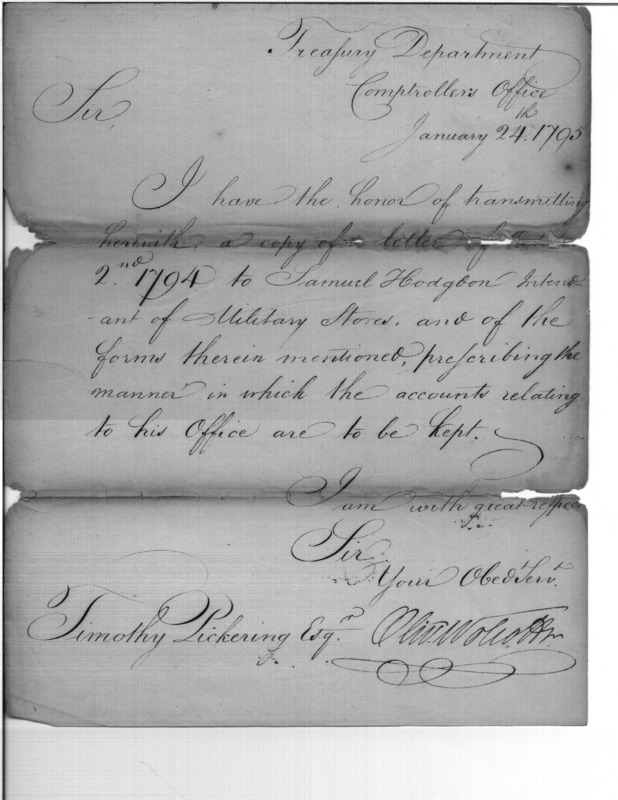 Treasury Department
Comptrollers Office
Sir,
January 24.th 1795
I have the honor of transmitting
herewith a copy of a letter of
2.nd 1794 to Samuel Hodgdon Intend
-ant of Military Stores, and of the
forms therein mentioned, prescribing the
manner in which the accounts relating
to his Office are to be kept.
I am with great respect
Sir
Your Obed.t Serv.t
Timothy Pickering Esq.r Oliv. Wolcott Jr.